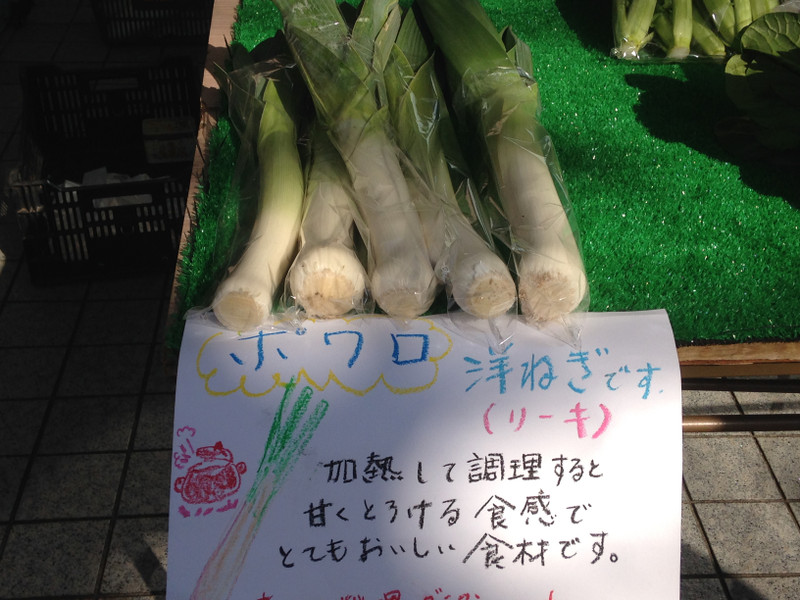 ポワロ
洋ねぎです。
(リーキ)
加熱して調理すると
甘くとろける食感で
とてもおいしい食材です。